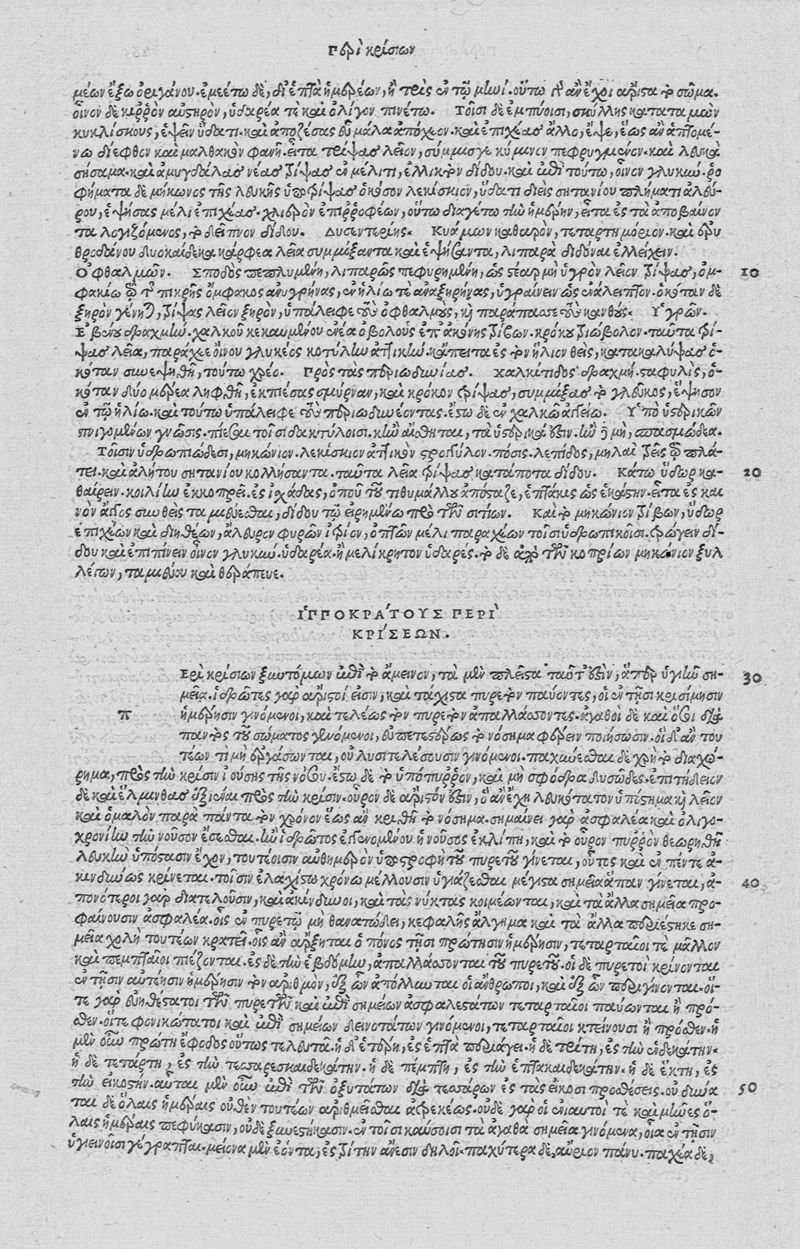 Περὶ κρίσιων
μέων ἔξω ὀριγάνου. ἐμεέτω δὲ, δι᾽ ἑπτὰ ἡμερέων, ἢ τρὶς ἐν τῷ μηνί. οὕτω γὰρ ἂν ἔχοι ἄριστα τὸ σῶμα.
οἶνον δὲ κιρρὸν αὐστηρὸν, ὑδαρέα τὲ καὶ ὀλίγον πινέτω. Τοῖσι δὲ ἐμπύοισι, σκίλλης καταταμὼν
κυκλίσκους, ἑψεῖν ὕδατι. καὶ ἀποζέσας εὖ μάλα ἀπόχεον. καὶ ἐπιχέας ἄλλο, ἕψε, ἕως ἂν ἁπτομέ-
νῳ δίεφθον καὶ μαλθακὸν φανῇ. εἶτα τρίψας λεῖον, σύμμισγε κύμινον πεφρυγμένον. καὶ λευκὰ
σήσαμα. καὶ ἀμυγδάλας νέας τρίψας ἐν μέλιτι, ἐλλικτὸν δίδου. καὶ ἐπὶ τούτῳ, οἶνον γλυκύν. ῥο
φήματα δὲ μήκωνος τῆς λευκῆς ὑποτρίψας ὁκόσον λεκίσκιον, ὕδατι διεὶς σητανίου πλήματι ἀλεύ-
ρου, ἑψήσας μέλι ἐπιχέας. χλιερὸν ἐπιρροφέων, οὕτω διαγέτω τὴν ἡμέρην, εἶτα ἐς τὰ ἀποβαίνον
τα λογιζόμενος, τὸ δεῖπνον δίδου. Δυσεντερίης. Κυάμων καθαρὸν, τεταρτημόριον. καὶ ἐρυ
θροδάνου δυοκαίδεκα κάρφεα λεῖα συμμίξαντα καὶ ἑψήσαντα, λιπαρὰ διδόναι ἐλλείχειν.
Ὀφθαλμῶν. Σποδὸς πεπλυμένη, λιπαρῶς πεφυρημένη, ὡς στέαρ μὴ ὑγρὸν λεῖον τρίψας, ὀμ- 10
φακίῳ τῷ τῆς πικρῆς ὄμφακος ἀνυγρήνας, ἐν ἡλίῳ τε ἀναξηρήνας, ὑγραίνειν ὡς ἐνάλειπτον. ὁκόταν δὲ
ξηρὸν γένηται, τρίψας λεῖον ξηρὸν, ὑπάλειφε τοὺς ὀφθαλμοὺς, καὶ παράπασσε τοὺς κανθούς. Ὑγρῶν.
Ἐβένου δραχμὴν. χαλκοῦ κεκαυμένου ἐννέα ὀβολοὺς ἐπ᾽ ἀκόνης τρίβων. κρόκου τριώβολον. ταῦτα τρί-
ψας λεῖα, παράχεε οἴνου γλυκέος κοτύλην ἀττικὴν. κἄπειτα ἐς τὸν ἥλιον θεὶς, κατακαλύψας ὁ-
κόταν συνεψηθῇ, τούτῳ χρέο. Πρὸς τὰς περιωδυνίας. Χαλκίτιδος δραχμὴ. σταφυλὶς, ὁ-
κόταν δύο ἡμέρεα ληφθῇ, ἐκπιέσας σμύρναν, καὶ κρόκον τρίψας, συμμίξας τὸ γλεῦκος, ἕψησον
ἐν τῷ ἡλίῳ. καὶ τούτῳ ὑπάλειφε τοὺς περιωδυνέοντας. ἔστω δὲ ἐν χαλκῷ ἀγγείῳ. Ὑπὸ ὑστερικῶν
πνιγομένων γνῶσις. πιέζει τοῖσι δακτύλοισι. κἢν αἴσθηται, τὰ ὑστερικά ἐστιν. ἢν δὲ μὴ, σπασμώδεα.
Τοῖσιν ὑδρωπιώδεσι, μηκώνιον. λεκίσκιον ἀττικὸν στρογγύλον. πόσις. λεπίδος, μῆλαι τρεῖς τῷ πλά-
τει. καὶ ἀλήτου σητανίου κολλήσαντα. ταῦτα λεῖα τρίψας καταπότα δίδου. Κάτω ὕδωρ κα- 20
θαίρειν. κοιλίην ἐκκοπρεῖ. ἐς ἰσχάδας, ὀποῦ τοῦ τιθυμάλλου ἀπόσταζε, ἑπτάκις ὡς ἑκάστην. εἶτα ἐς και
νὸν ἄγγος συνθεὶς ταμιεύεσθαι, δίδου τῷ εἰρημένῳ πρὸ τῶν σιτίων. Καὶ τὸ μηκώνιον τρίβων, ὕδωρ
ἐπιχέων καὶ διηθέων, ἄλευρον φυρῶν ἴτριον, ὀπτῶν μέλι παραχέων τοῖσι ὑδρωπικοῖσι. τρώγειν δί-
δου καὶ ἐπιπίνειν οἶνον γλυκὺν. ὑδαρέα. ἢ μελίκρητον ὑδαρές. τὸ δὲ ἀπὸ τῶν κοπρίων μηκώνιον ξυλ
λέγων, ταμιεύου καὶ θεράπευε.
ἹΠΠΟΚΡΆΤΟΥΣ ΠΕΡῚ
ΚΡΙΣΕΩΝ.
Ερὶ κρίσιων ξυντόμων ἐπὶ τὸ ἄμεινον, τὰ μὲν πλεῖστα ταὐτά ἐστιν, ἅπερ ὑγιῶν ση- 30
μεῖα. ἱδρῶτες γὰρ ἄριστοί εἰσιν, καὶ τάχιστα πυρετὸν παύοντες, οἱ ἐν τῇσι κρισίμησιν
π ἡμέρησιν γινόμενοι, καὶ τελέως τὸν πυρετὸν ἀπαλλάσσοντες. ἀγαθοὶ δὲ καὶ ὅσοι διὰ
παντὸς τοῦ σώματος γενόμενοι, εὐπετεστέρως τὸ νόσημα φέρειν ποίησοσιν. οἳ δ᾽ ἂν του
τέων τι μὴ ἐργάσωνται, οὐ λυσιτελέουσιν γινόμενοι. παχύνεσθαι δὲ χρὴ τὸ διαχώ-
ρημα, πρὸς τὴν κρίσιν ἰούσης τῆς νούσου. ἔστω δὲ τὸ ὑπόπυρρον, καὶ μὴ σφόδρα δυσῶδες. ἐπιτήδειον
δὲ καὶ ἕλμινθας ἐξιέναι πρὸς τὴν κρίσιν. οὖρον δὲ ἄριστόν ἐστιν, ὃ ἂν ἔχῃ λευκότατον ὑπόστημα καὶ λεῖον
καὶ ὁμαλὸν παρὰ πάντα τὸν χρόνον ἕως ἂν κριθῇ τὸ νόσημα. σημαίνει γὰρ ἀσφάλεα καὶ ὀλιγο-
χρονίην τὴν νοῦσον ἔσεσθαι. ἢν ἱδρῶτος ἐγγενομένου ἡ νοῦσος ἐκλίπῃ, καὶ τὸ οὖρον πυρρὸν θεωρηθῇ
λευκὴν ὑπόστασιν ἔχον, τουτέοισιν αὐθημερὸν ὑποστροφὴ τοῦ πυρετοῦ γίνεται, οὗτος καὶ ἐν πέντε ἀ-
κινδύνως κρίνεται. τοῖσιν ἐλαχίστῳ χρόνῳ μέλλουσιν ὑγιάζεσθαι μέγιστα σημεῖα ἅπαν γίνεται, ἀ- 40
πονώτεροι γὰρ διατελοῦσιν, καὶ ἀκίνδυνοι, καὶ τὰς νύκτας κοιμέωνται, καὶ τὰ ἄλλα σημεῖα προ-
φαίνουσιν ἀσφαλέα. οἷς ἐν πυρετῷ μὴ θανατώδει, κεφαλῆς ἄλγημα καὶ τὰ ἄλλα περιέστηκε ση-
μεῖα χολὴ τουτέων κρατέει. οἷς ἂν ἄρξηται ὁ πόνος τῇσι πρώτησιν ἡμέρησιν, τεταρταῖοί τε μᾶλλον
καὶ πεμπταῖοι πιέζονται. ἐς δὲ τὴν ἑβδόμην, ἀπαλλάσσονται τοῦ πυρετοῦ. οἱ δὲ πυρετοὶ κρίνονται
ἐν τῇσιν αὐτέησιν ἡμέρησιν τὸν ἀριθμὸν, ἐξ ὧν ἀπόλλυνται οἱ ἄνθρωποι, καὶ ἐξ ὧν περιγίνονται. οἵ-
τε γὰρ εὐηθέστατοι τῶν πυρετῶν καὶ ἐπὶ σημείων ἀσφαλεστάτων τεταρταῖοι παύονται ἢ πρό-
σθεν. οἵτε φονικώτατοι καὶ ἐπὶ σημείων δεινοτάτων γινόμενοι, τεταρταῖοι κτείνουσι ἢ πρόσθεν. ἡ
μὲν οὖν πρώτη ἔφοδος οὕτως τελευτᾷ. ἡ δ᾽ ἑτέρη, ἐς ἑπτὰ περιάγει. ἡ δὲ τρίτη, ἐς τὴν ἑνδεκάτην.
ἡ δὲ τετάρτη, ἐς τὴν τεσσαρεσκαιδεκάτην. ἡ δὲ πέμπτη, ἐς τὴν ἑπτακαιδεκάτην. ἡ δὲ ἕκτη, ἐς
τὴν εἰκοστὴν. αὗται μὲν οὖν ἐπὶ τῶν ὀξυτάτων διὰ τεσσάρων ἐς τὰς εἴκοσι προσθέσεις. οὐ δύνα 50
ται δὲ ὅλαις ἡμέραις οὐθὲν τουτέων ἀριθμεῖσθαι ἀτρεκέως. οὐδὲ γὰρ οἱ ἐνιαυτοί τέ καὶ μῆνες ὅ-
λαις ἡμέραις πεφύκασιν, οὐδὲ ξυνεστήκασιν. ἐν τοῖσι καύσοισι τὰ ἀγαθὰ σημεῖα γινόμενα, οἷα ἐν τῇσιν
ὑγιεινοῖσι γέγραπται. μείονα μὲν ἐόντα, ἐς τρίτην ἄνεσιν δηλοῖ. παχύτερα δὲ, αὔριον πάνυ. παχέα δὲ,